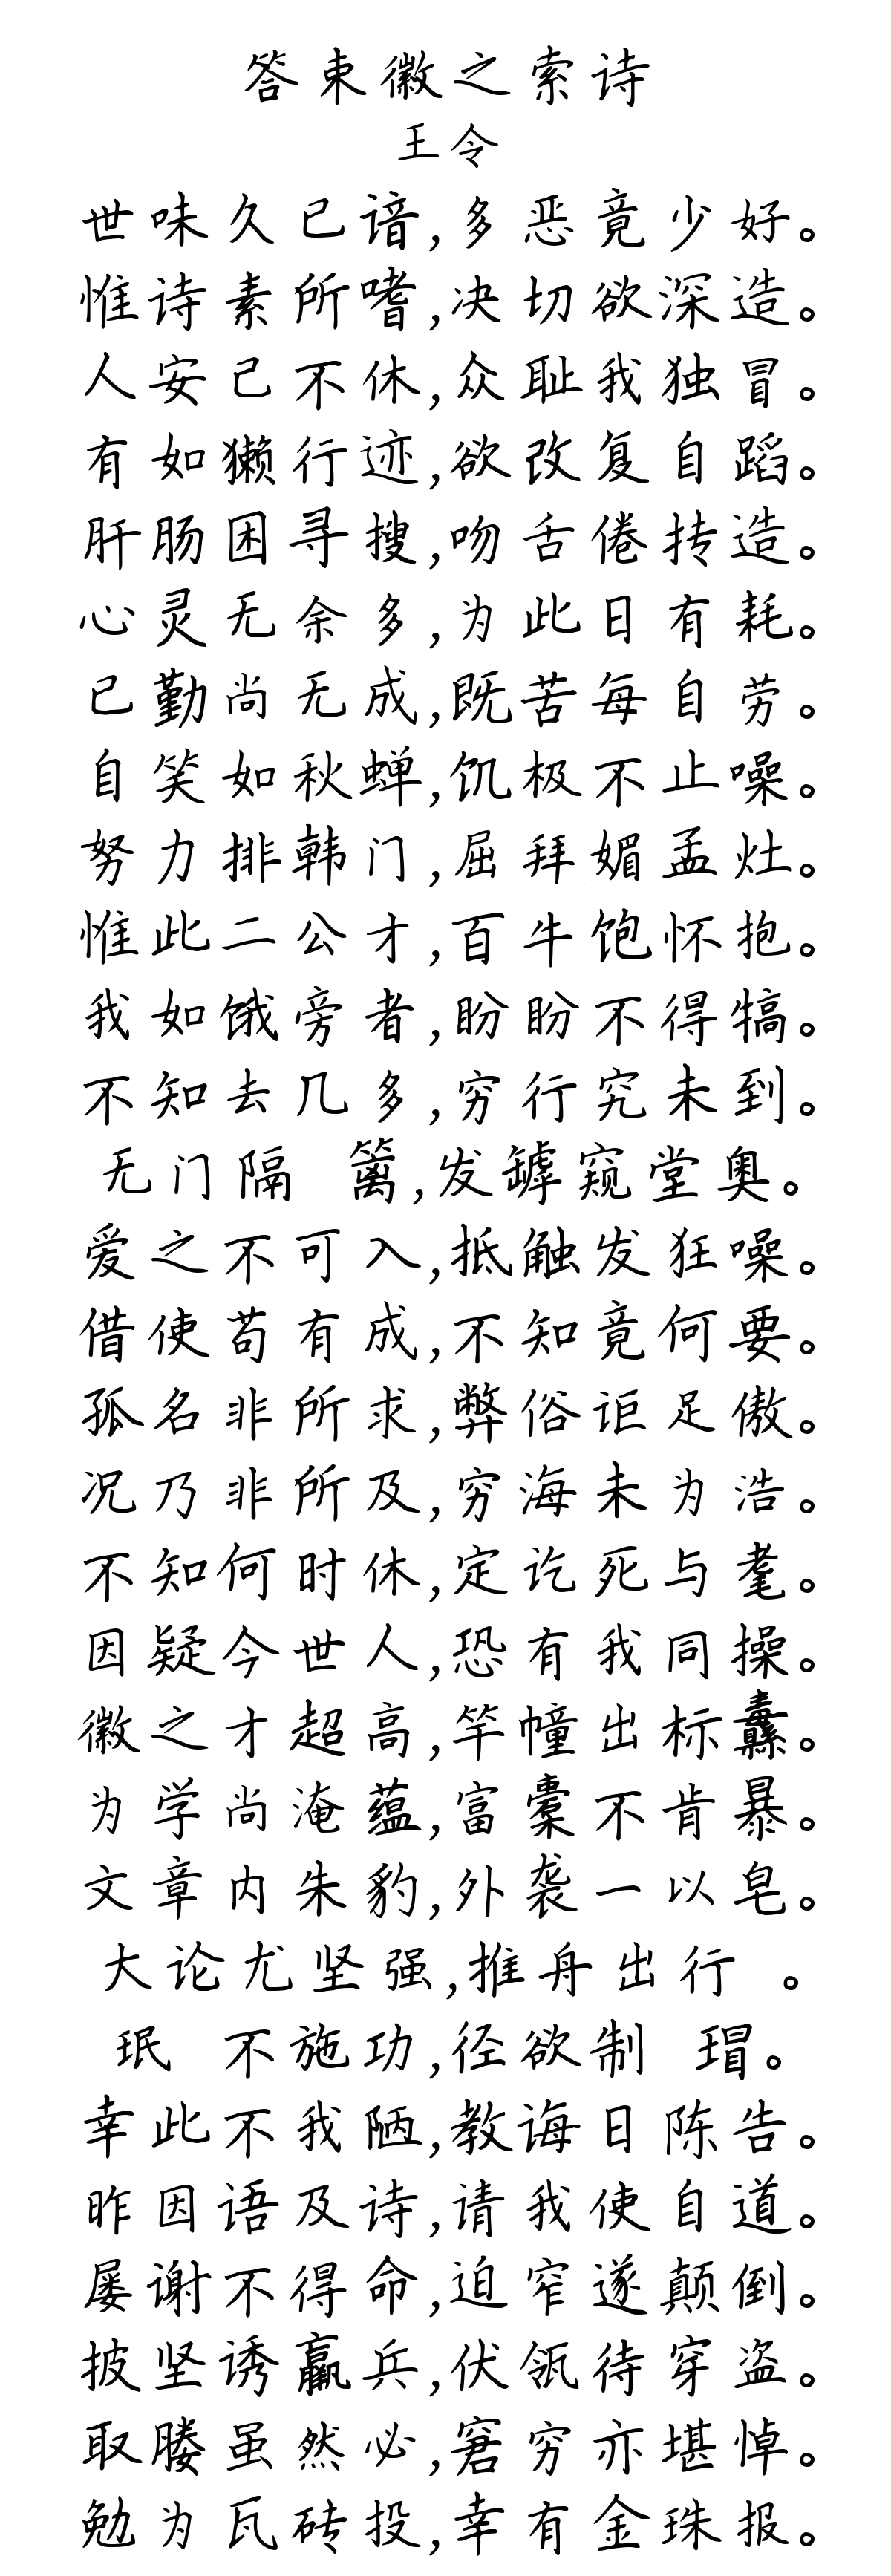 答束徽之索诗
王令
世味久已谙,多恶竟少好。
惟诗素所嗜,决切欲深造。
人安己不休,众耻我独冒。
有如獭行迹,欲改复自蹈。
肝肠困寻搜,吻舌倦抟造。
心灵无余多,为此日有耗。
已勤尚无成,既苦每自劳。
自笑如秋蝉,饥极不止噪。
努力排韩门,屈拜媚孟灶。
惟此二公才,百牛饱怀抱。
我如饿旁者,盼盼不得犒。
不知去几多,穷行究未到。
无门隔 篱,发罅窥堂奥。
爱之不可入,抵触发狂噪。
借使苟有成,不知竟何要。
孤名非所求,弊俗讵足傲。
况乃非所及,穷海未为浩。
不知何时休,定讫死与耄。
因疑今世人,恐有我同操。
徽之才超高,竿幢出标纛。
为学尚淹蕴,富橐不肯暴。
文章内朱豹,外袭一以皂。
大论尤坚强,推舟出行 。
珉 不施功,径欲制 瑁。
幸此不我陋,教诲日陈告。
昨因语及诗,请我使自道。
屡谢不得命,迫窄遂颠倒。
披坚诱羸兵,伏瓴待穿盗。
取媵虽然必,窘穷亦堪悼。
勉为瓦砖投,幸有金珠报。